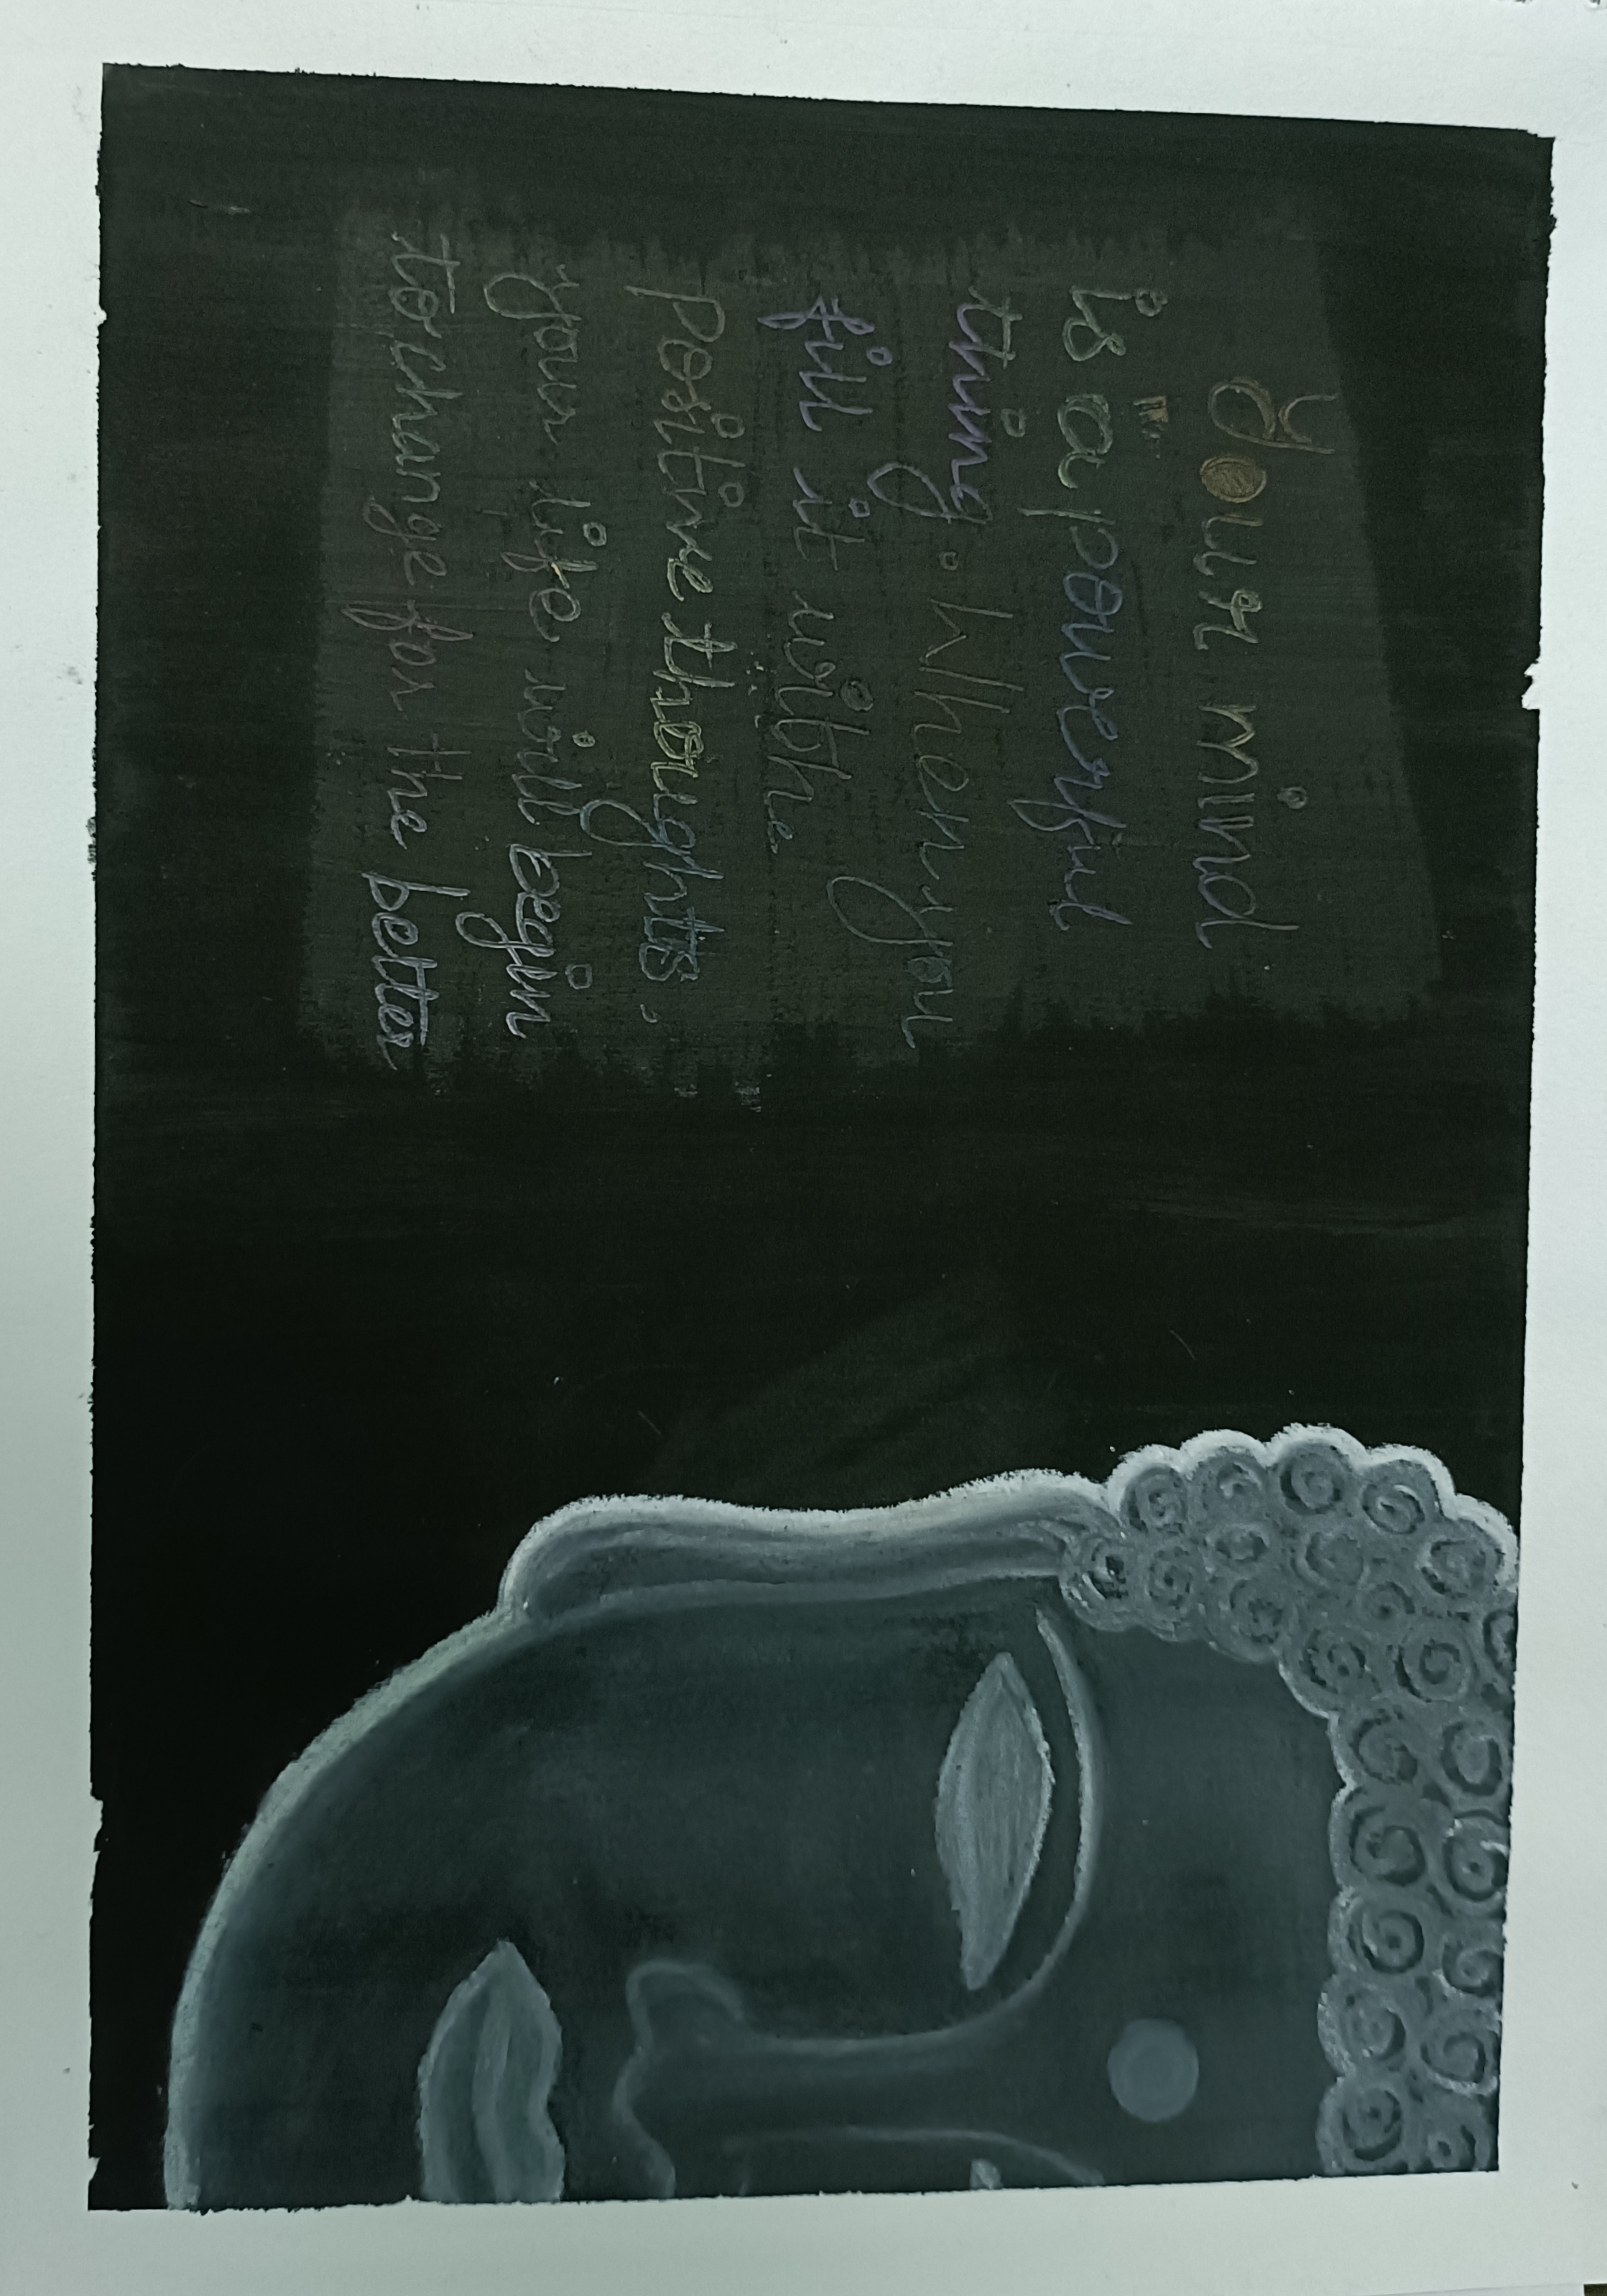 Your mind
is a powerful
thing. When you
fill it with
positive thoughts.
your life will begin
to change for the better